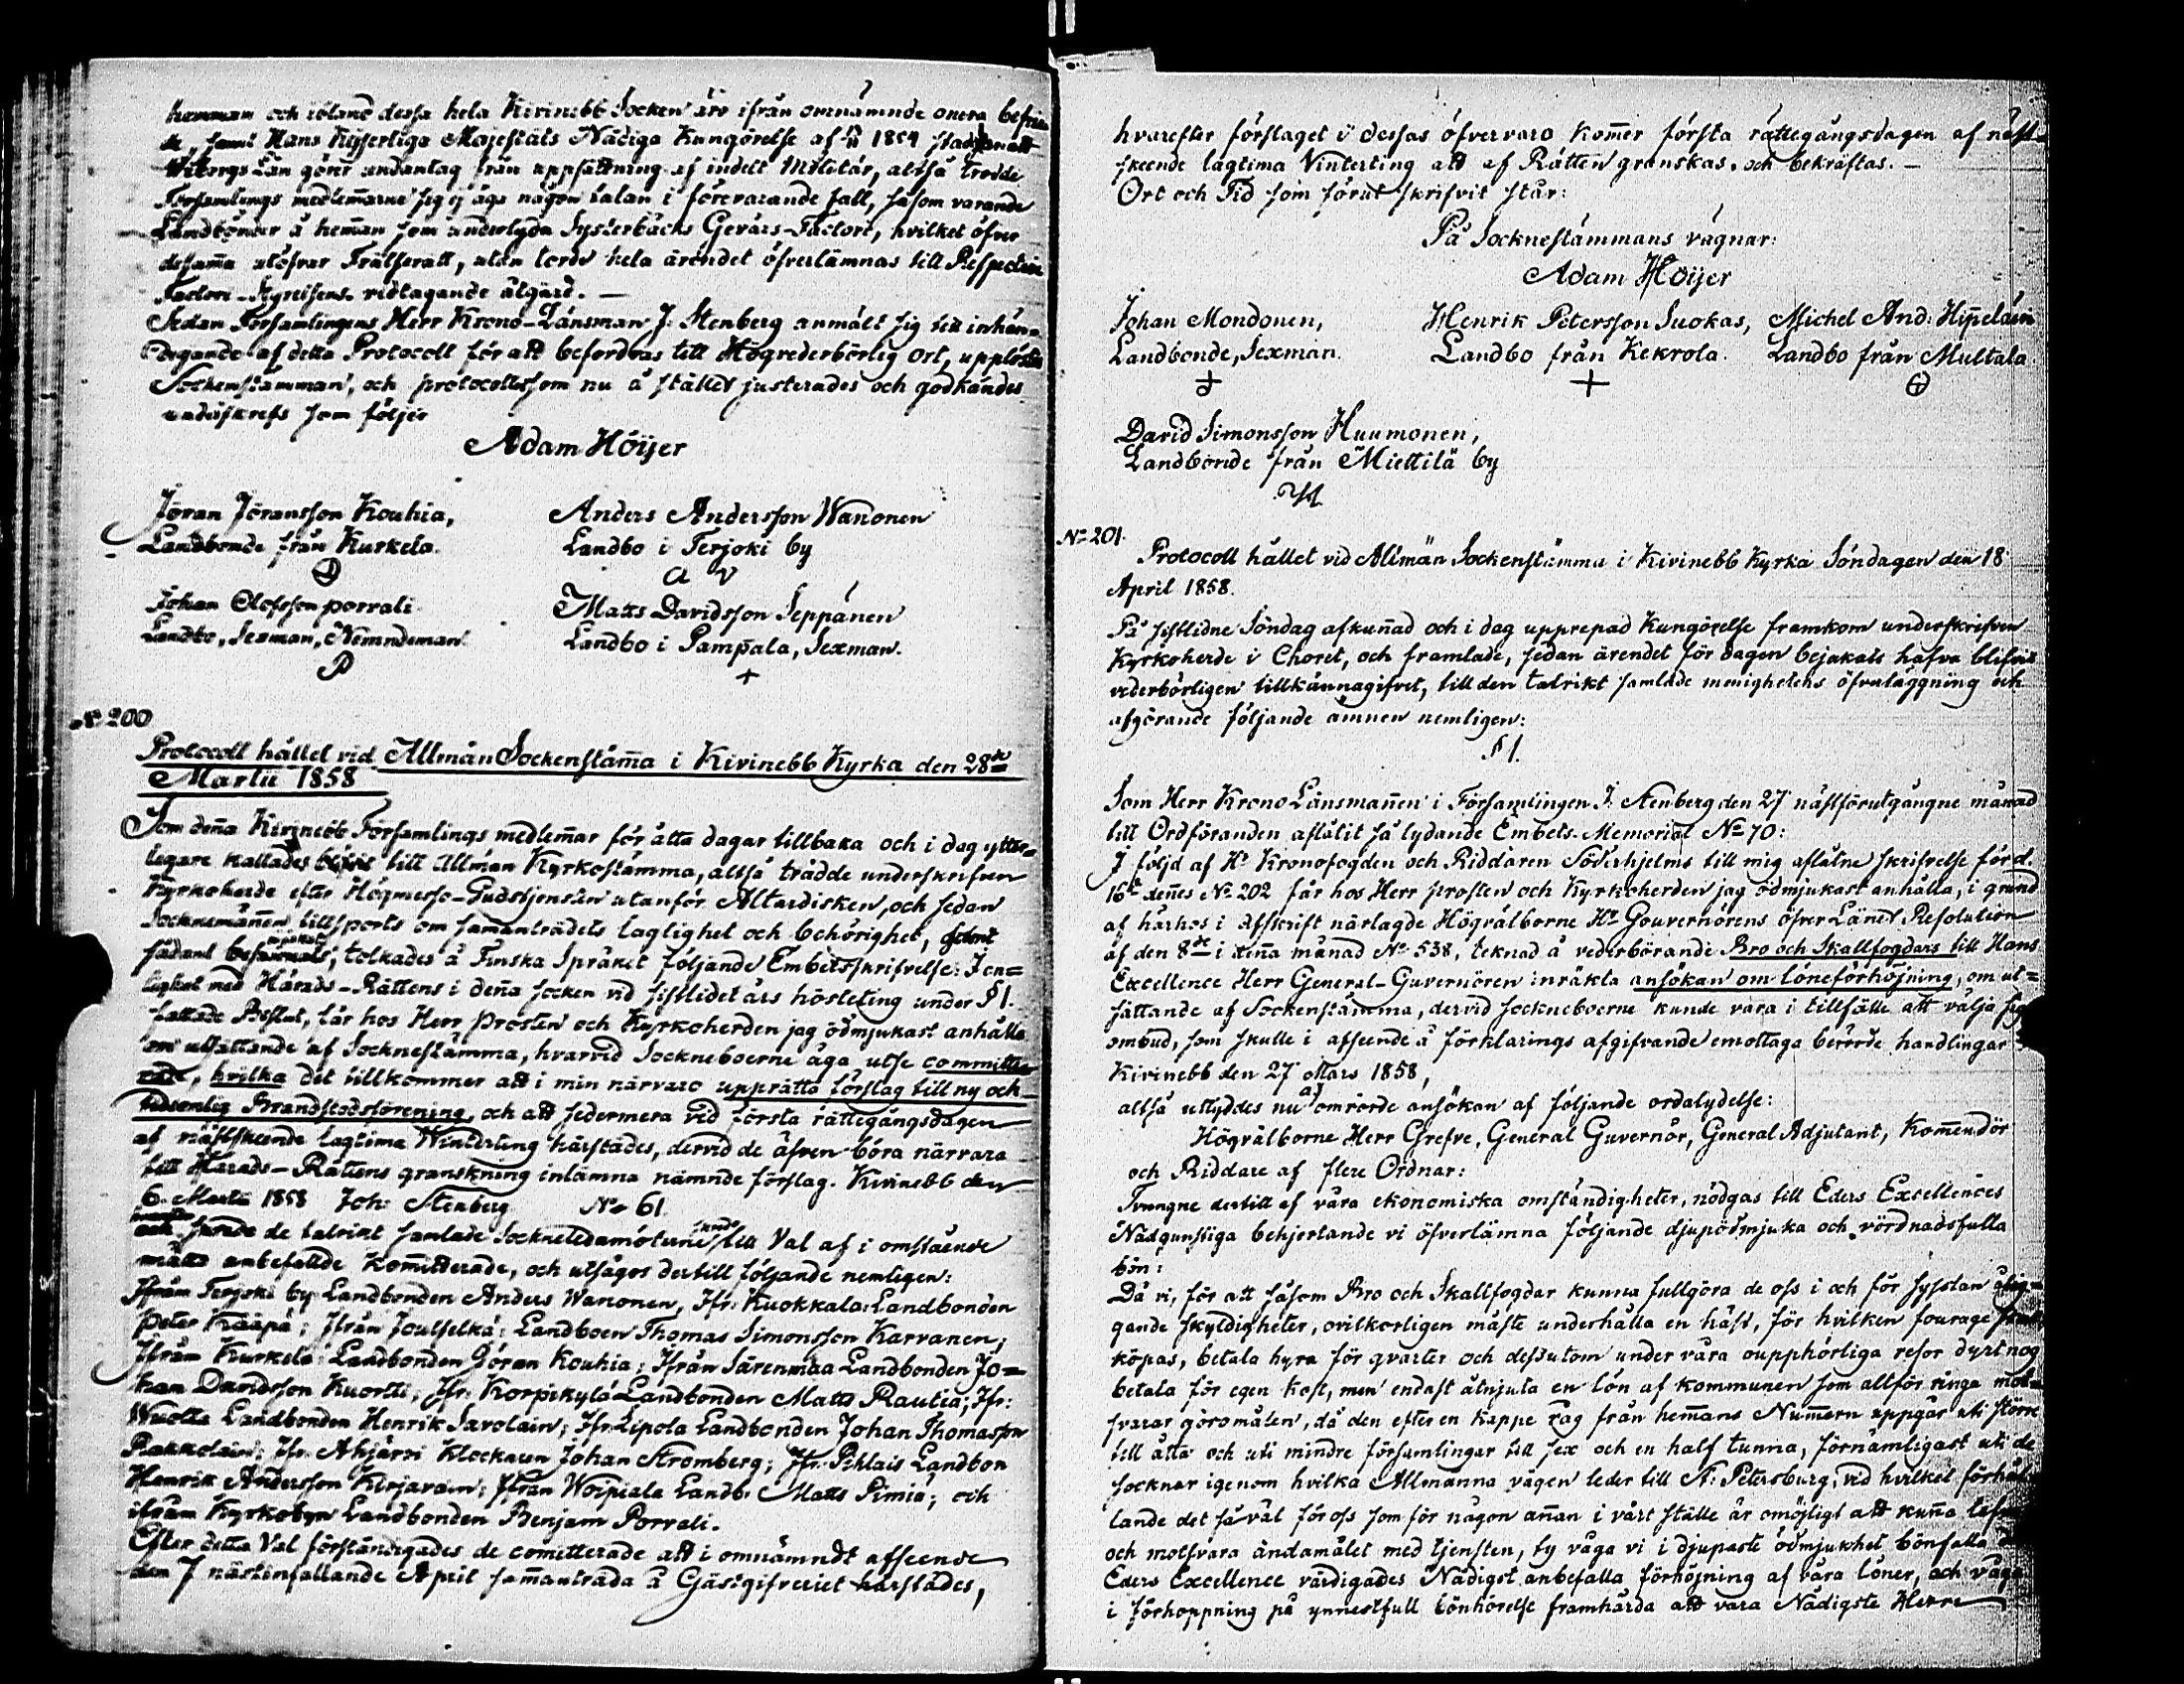 hemman och ibland dessa hela Kivinebb Socken äro ifrån omnämnde onera befria
de, samt Hans Kejserliga Majestäts Nådiga Kungörelse af 1854 stadgar att
Wiborgs Län görer undantag från uppsättning af indelt Militär, altså trodde
Församlings medlemarne sig ej äga någon talan i förevarande fall, såsom varande
Landbönder å hemman som underlyda Systerbäcks Gevärs-Factori, hvilket öfver
desama utöfvar Frälserätt, utan torde hela ärendet öfverlämnas till Respective
Factori-Styrelsens vidtagande åtgärd. —
Sedan Församlingens Herr Krono-Länsman J. Stenberg anmält sig till inhän-
digande af detta Protocoll för att befordras till Högvederbörlig ort, upplöstes
Sockenstämman, och protocollet som nu å stället justerades och godkändes
underskrefs som följer
Adam Höijer
Jöran Jöransson Kouhia,
Landbonde från Kurkela.
Anders Andersson Wanonen
Landbo i Terjoki by
A V
Johan Olofsson porrali
Landbo, Sexman, Nämndeman.
P
Matts Davidsson Seppänen
Landbo i Pampala, Sexman.
+
No 200
Protocoll hållet vid Allmän Sockenstäma i Kivinebb Kyrka den 28de
Martii 1858
Som dena Kivinebb Församlings medlemar för åtta dagar tillbaka och i dag ytter=
ligare kallades till Allmän Kyrkostämma, altså trädde underskrifven
Kyrkoherde efter Högmesso-Gudstjensten utanför Altardisken, och sedan
Socknemännen tillsports om samanträdets laglighet och behörighet,
sådant bejakats, tolkades å Finska Språket följande Embetsskrifvelse: I en=
lighet med Härads-Rättens i dena socken vid sistlidet års hösteting under § 1.
fattade Beslut, får hos Herr Prosten och Kyrkoherden jag ödmjukast anhålla
om utsättande af Socknestämma, hvarvid Sockneboerne äga utse committe
rade, hvilka det tillkommer att i min närvaro upprätta förslag till ny och
tidsenlig Brandstodsförening, och att sedermera vid första rättegångsdagen
af nästskeende lagtima Winterting härstädes, dervid de äfven böra närvara
till Härads-Rättens granskning inlämna nämnde förslag. Kivinebb den
6 Martii 1858 Joh: Stenberg No 61.
de talrikt samlade Sockneledamöterne till Val af i omstående
måtto anbefallde Komitterade, och utsågos dertill följande nemligen:
Ifrån Terjoki by Landbonden Anders Wanonen, Ifr: Kuokkala: Landbonden
Peter Kääpä; Ifrån Joutselkä: Landboen Thomas Simonsson Karvanen;
Ifrån Kurkela: Landbonden Göran Kouhia; Ifrån Särenmaa Landbonden Jo=
han Davidsson Kuortti; Ifr: Korpikylä Landbonden Matts Rautia; Ifr:
Wuotta Landbonden Henrik Savolain; Ifr: Lipola Landbonden Johan Thomasson
Pakkolain; Ifr: Ahjärvi Klockaren Johan Strömberg; Ifr: Pihlais Landbon
Henrik Andersson Kirjavain; Ifrån Woipiala Landb: Matts Pimiä; och
ifrån Kyrkobyn Landbonden Benjam Porrali.
Efter detta Val förständigades de comitterade att i omnämndt afseende
den 7 nästinfallande April samanträda å Gästgifveriet härstädes,
hvarefter förslaget i dessas öfvervaro komer första rättegångsdagen af näst-
skeende lagtima Vinterting att af Rätten granskas, och bekräftas. —
Ort och Tid som förut skrifvit står:
På Socknestämmans vägnar:
Adam Höijer
Johan Mondonen,
Landbonde, Sexman.
Henrik Petersson Suokas,
Landbo från Kekrola.
+
Michel And: Hipeläin
Landbo från Multala
David Simonsson Huumonen,
Landbonde från Miettilä by
No 201.
Protocoll hållet vid Allmän Sockenstämma i Kivinebb Kyrka Söndagen den 18
April 1858.
På sistlidne Söndag afkunad och i dag upprepad Kungörelse framkom underskrifven
Kyrkoherde i Choret, och framlade, sedan ärendet för dagen bejakats hafva blifvit
vederbörligen tillkännagifvet, till den talrikt samlade menighetens öfverläggning och
afgörande följande ämnen nemligen:
§ 1.
Som Herr Krono Länsmanen i Församlingen J. Stenberg den 27 nästförutgångne månad
till Ordföranden aflåtit så lydande Embets-Memorial No 70:
I följd af Hr Kronofogden och Riddaren Söderhjelms till mig aflåtne skrifvelse för d.
16de denes No 202 får hos Herr prosten och Kyrkoherden jag ödmjukast anhålla, i grund
af härhos i Afskrift närlagde Högvälborne Hr Gouvernörens öfver Länet Resolution
af den 8de i dena månad No 538, teknad å vederbörande Bro och Skallfogdars till Hans
Excellence Herr General-Guvernören inräkta ansökan om löneförhöjning, om ut=
sättande af Sockenstämma, dervid sockneboerne kunde vara i tillfälle att välja sig
ombud, som skulle i afseende å förklarings afgifvande emottaga berörde handlingar
Kivinebb den 27 Mars 1858,
altså uttyddes nu af omrörde ansökan af följande ordalydelse:
Högvälborne Herr Grefve, General Guvernör, General Adjutant, Komendör
och Riddare af flere Ordnar:
Tvungne dertill af våra ekonomiska omständigheter, nödgas till Eders Excellences
Nådgunstiga behjertande vi öfverlämna följande djupödmjuka och vördnadsfulla
bön:
Då vi, för att såsom Bro och Skallfogdar kunna fullgöra de oss i och för sysslan ålig-
gande skyldigheter, ovilkorligen måste underhålla en häst, för hvilken fourage skall
köpas, betala hyra för qvarter och dessutom under våra oupphörliga resor dyrt nog
betala för egen kost, men endast åtnjuta en lön af kommunen som allför ringa mot-
svarar göromålen, då den efter en kappe Råg från hemans Numern uppgår uti större
till åtta och uti mindre församlingar till sex och en half tunna, förnämligast uti de
socknar igenom hvilka Allmänna vägen leder till St: Petersburg, vid hvilket förhål
lande det så väl för oss som för någon anan i vårt ställe är omöjligt att kuna lefva
och motsvara ändamålet med tjensten, ty våga vi i djupaste ödmjukhet bönfalla
Eders Excellence värdigades Nådigst anbefalla förhöjning af våra löner, och våga
i förhoppning på ynnestfull bönhörelse framhärda att vara Nådigste Herre